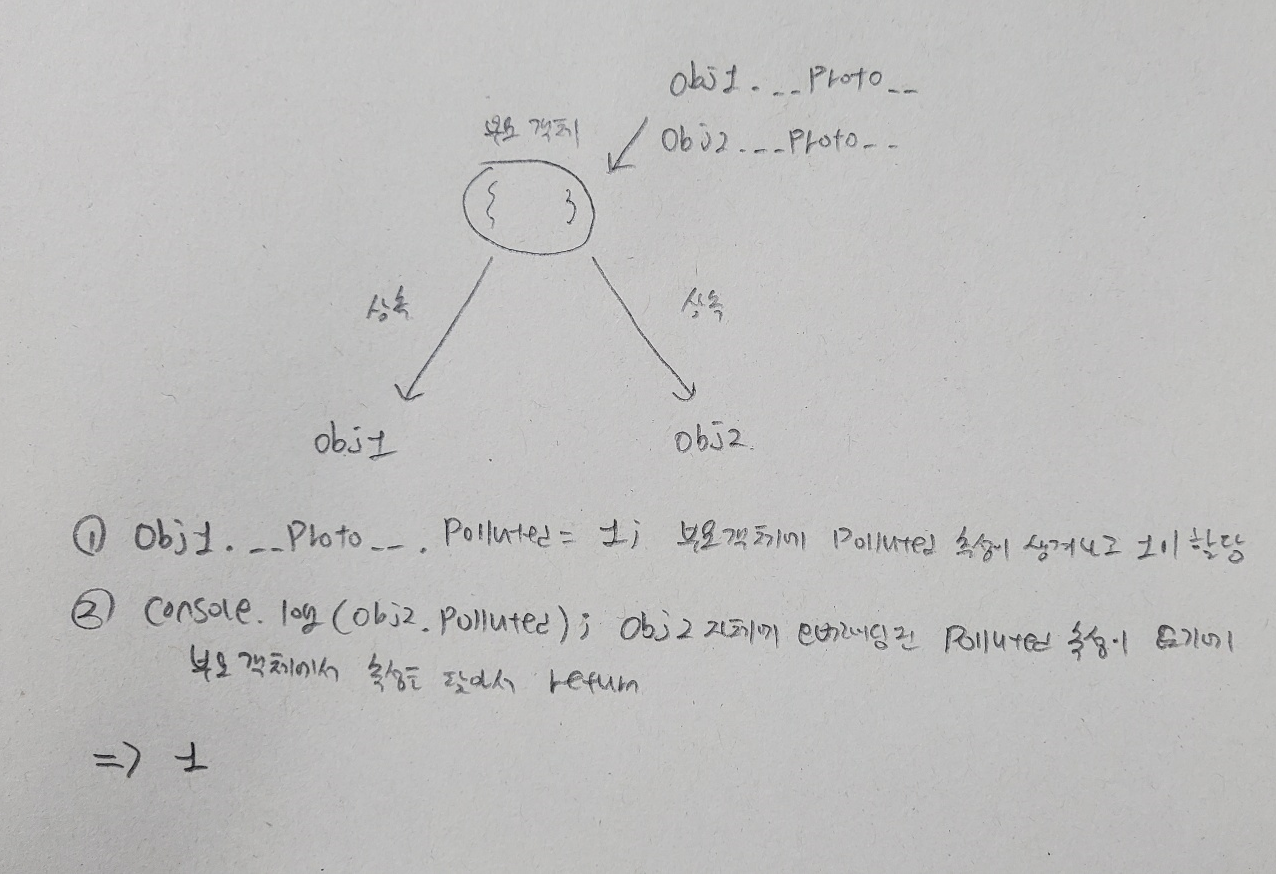 Obj1.__Proto__
부모 객체
Obj2.__Proto__
{ }
상속
상속
Obj1
Obj2
① Obj1.__Proto__.Polluted = 1; 부모객체에 Polluted 속성이 생겨나고 1이 할당
② Console.log(Obj2.Polluted); Obj2 자체에 오버라이딩된 Polluted 속성이 없기에
부모 객체에서 속성을 찾아서 return
=> 1